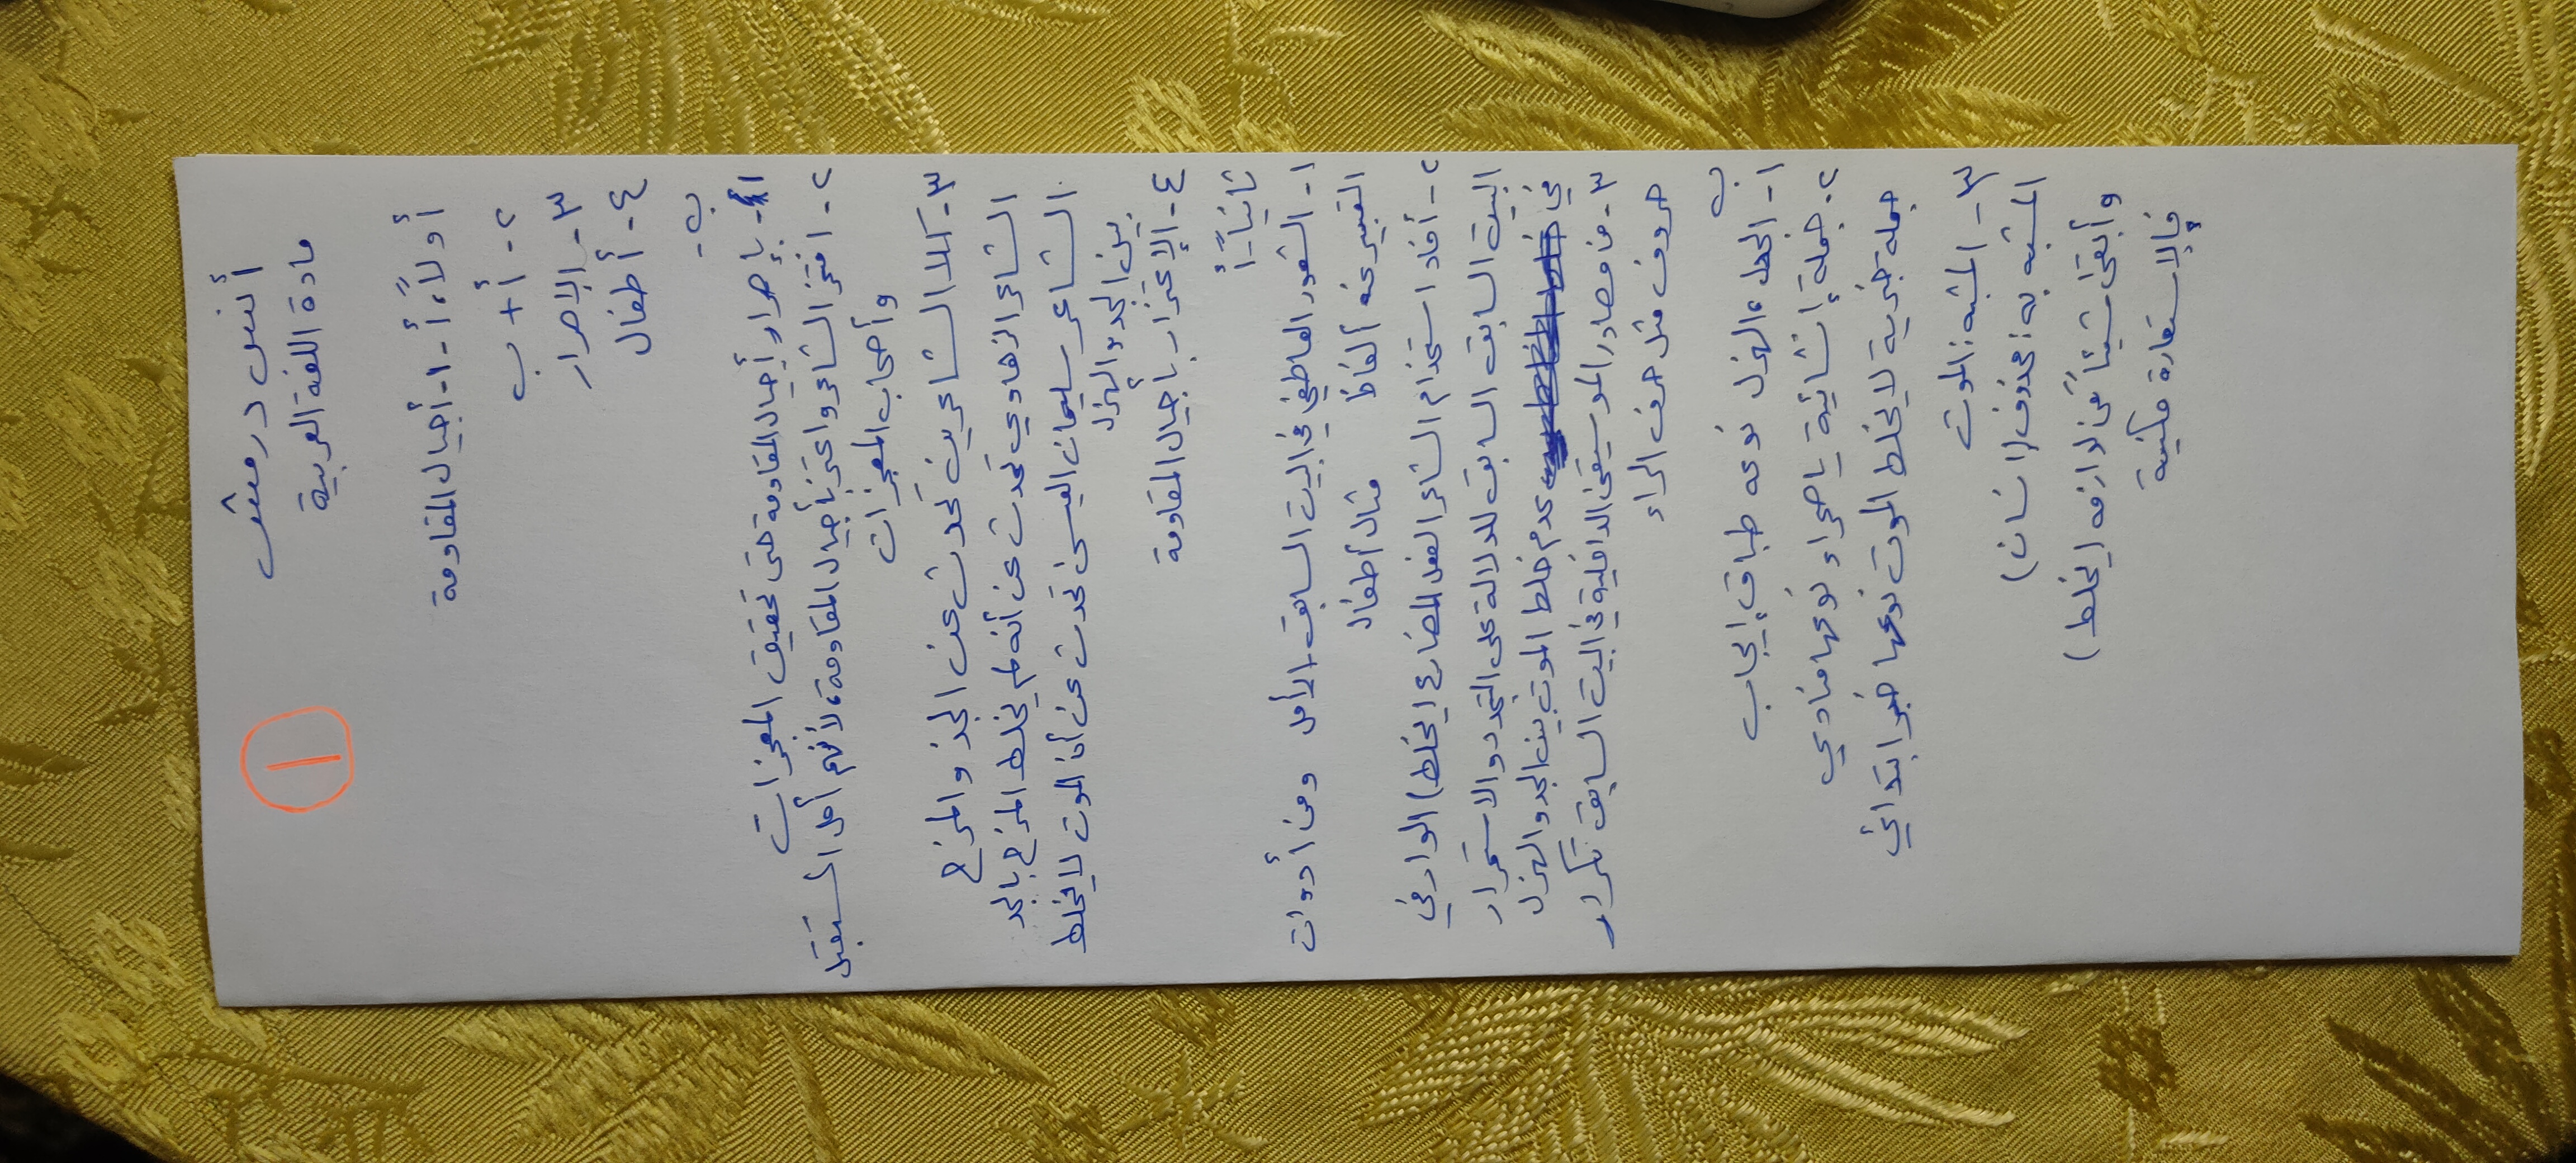 أنس درمش
مادة اللغة العربية
١
أولاً، أ- ١- أجيال المقاومة
٢- أ + ب
٣- الإصرار
٤- أطفال
ب-
١- بإصرار أجيال المقاومة حتى تحقيق المعجزات
٢- افتخر الشاعر واعتز بأجيال المقاومة، لأنهم أمل المستقبل
وأصحاب المعجزات
٣- كلا الشاعرين تحدث عن الجد والمزح
الشاعر الزهاوي تحدث عن أنه لم يخلط المزح بالجد
الشاعر سليمان العيسى تحدث عن أن الموت لا يخلط
بين الجد والهزل
٤- الإعتزار بأجيال المقاومة
ثانياً- أ
١- الشعور العاطفي في البيت السابق- الأمل ومن أدوات
التعبير عنه ألفاظ مثال أطفال
٢- أفاد استخدام الشاعر الفعل المضارع (يخلط) الوارد في
البيت السابق السابق للدلالة على التجدد والاستمرار
في عدم خلط الموت بين الجد والهزل
٣- من مصادر الموسيقى الداخلية في البيت السابق تكرار
حروف مثل حرف الراء
ب
١- الجد، الهزل نوعه طباق إيجاب
٢- جملة إنشائية يا صحراء نوعها منادي
جملة خبرية لا يخلط الموت نوعها خبر ابتدائي
٣- المشبه: الموت
المشبه به: محذوف (انسان)
وأبقى شيئاً من لوازمه (يخلط)
فالإستعارة مكنية